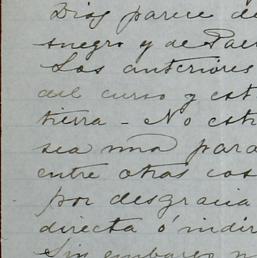 Dios parece de
snegro y de Paer
Los anteriores
del curso y est
tierra - No estr
sea una para
entre otras cos
por desgracia
directa ó indir
Sin embargo n